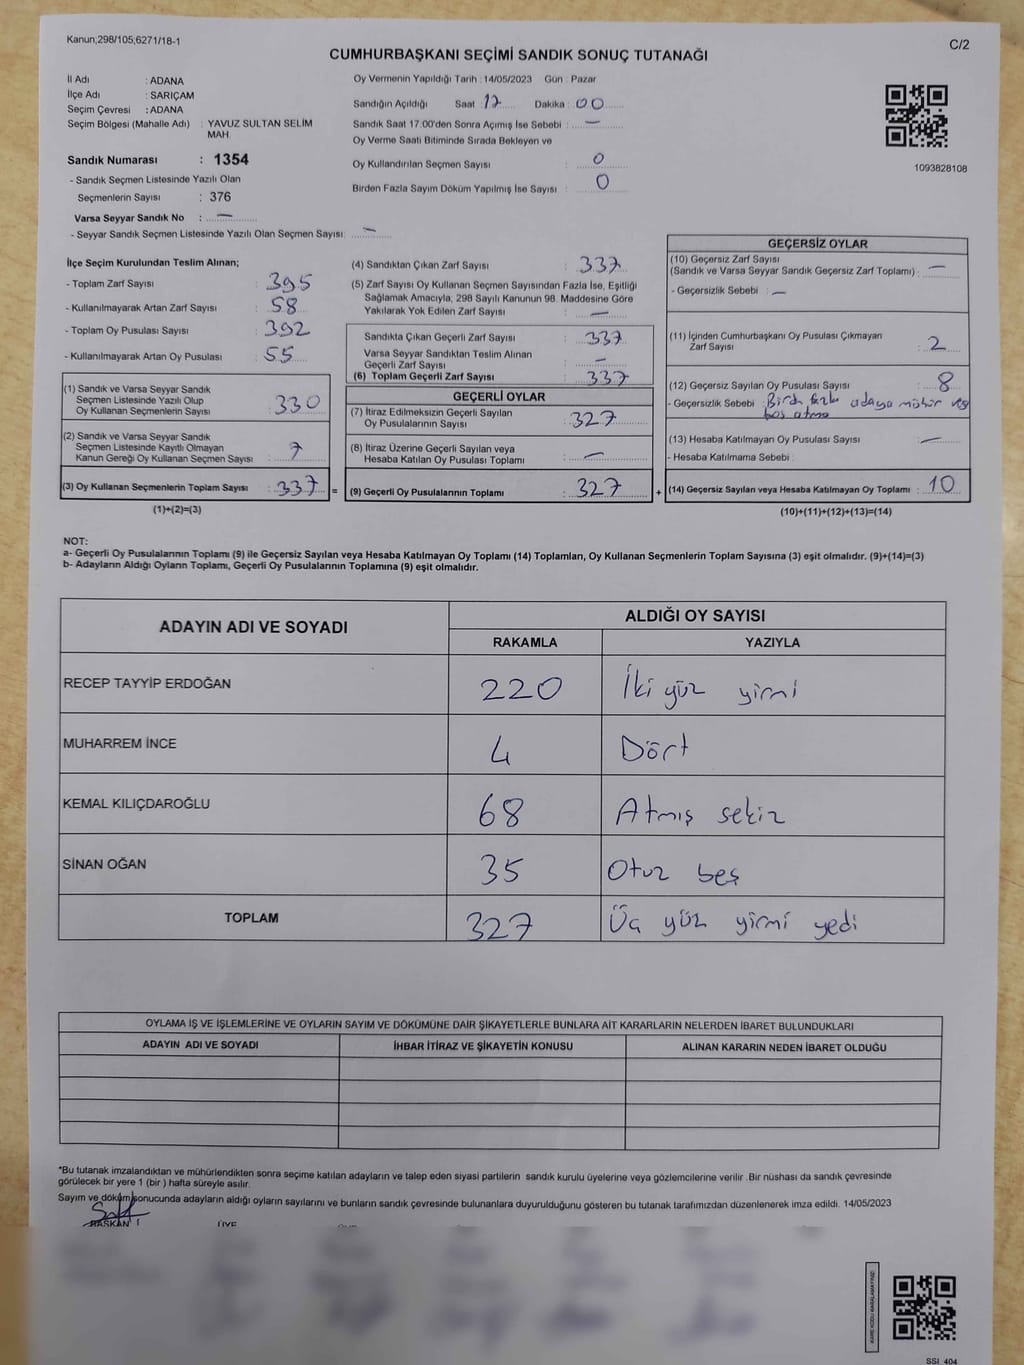 Kanun;298/105,6271/18-1
C/2
CUMHURBAŞKANI SEÇİMİ SANDIK SONUÇ TUTANAĞI
İl Adı : ADANA
İlçe Adı : SARIÇAM
Seçim Çevresi : ADANA
Seçim Bölgesi (Mahalle Adı) : YAVUZ SULTAN SELİM
MAH.
Sandık Numarası : 1354
- Sandık Seçmen Listesinde Yazılı Olan
Seçmenlerin Sayısı : 376
Varsa Seyyar Sandık No : —
- Seyyar Sandık Seçmen Listesinde Yazılı Olan Seçmen Sayısı: —
Oy Vermenin Yapıldığı Tarih : 14/05/2023 Gün : Pazar
Sandığın Açıldığı Saat : 17 Dakika : 00
Sandık Saat 17.00'den Sonra Açımış İse Sebebi : —
Oy Verme Saati Bitiminde Sırada Bekleyen ve
Oy Kullandırılan Seçmen Sayısı : 0
Birden Fazla Sayım Döküm Yapılmış İse Sayısı : 0
1093828108
İlçe Seçim Kurulundan Teslim Alınan;
- Toplam Zarf Sayısı : 395
- Kullanılmayarak Artan Zarf Sayısı : 58
- Toplam Oy Pusulası Sayısı : 392
- Kullanılmayarak Artan Oy Pusulası : 55
(1) Sandık ve Varsa Seyyar Sandık
Seçmen Listesinde Yazılı Olup
Oy Kullanan Seçmenlerin Sayısı : 330
(2) Sandık ve Varsa Seyyar Sandık
Seçmen Listesinde Kayıtlı Olmayan
Kanun Gereği Oy Kullanan Seçmen Sayısı : 7
(3) Oy Kullanan Seçmenlerin Toplam Sayısı : 337 =
(1)+(2)=(3)
(4) Sandıktan Çıkan Zarf Sayısı : 337
(5) Zarf Sayısı Oy Kullanan Seçmen Sayısından Fazla İse, Eşitliği
Sağlamak Amacıyla, 298 Sayılı Kanunun 98. Maddesine Göre
Yakılarak Yok Edilen Zarf Sayısı : —
Sandıkta Çıkan Geçerli Zarf Sayısı : 337
Varsa Seyyar Sandıktan Teslim Alınan
Geçerli Zarf Sayısı : —
(6) Toplam Geçerli Zarf Sayısı : 337
GEÇERLİ OYLAR
(7) İtiraz Edilmeksizin Geçerli Sayılan
Oy Pusulalarının Sayısı : 327
(8) İtiraz Üzerine Geçerli Sayılan veya
Hesaba Katılan Oy Pusulası Toplamı : —
(9) Geçerli Oy Pusulalarının Toplamı : 327 +
GEÇERSİZ OYLAR
(10) Geçersiz Zarf Sayısı
(Sandık ve Varsa Seyyar Sandık Geçersiz Zarf Toplamı) : —
- Geçersizlik Sebebi : —
(11) İçinden Cumhurbaşkanı Oy Pusulası Çıkmayan
Zarf Sayısı : 2
(12) Geçersiz Sayılan Oy Pusulası Sayısı : 8
- Geçersizlik Sebebi : Birden fazla adaya mühür veya
boş atma
(13) Hesaba Katılmayan Oy Pusulası Sayısı : —
- Hesaba Katılmama Sebebi :
(14) Geçersiz Sayılan veya Hesaba Katılmayan Oy Toplamı : 10
(10)+(11)+(12)+(13)=(14)
NOT:
a- Geçerli Oy Pusulalarının Toplamı (9) ile Geçersiz Sayılan veya Hesaba Katılmayan Oy Toplamı (14) Toplamları, Oy Kullanan Seçmenlerin Toplam Sayısına (3) eşit olmalıdır. (9)+(14)=(3)
b- Adayların Aldığı Oyların Toplamı, Geçerli Oy Pusulalarının Toplamına (9) eşit olmalıdır.
ADAYIN ADI VE SOYADI
ALDIĞI OY SAYISI
RAKAMLA YAZIYLA
RECEP TAYYİP ERDOĞAN 220 İki yüz yirmi
MUHARREM İNCE 4 Dört
KEMAL KILIÇDAROĞLU 68 Atmış sekiz
SİNAN OĞAN 35 Otuz beş
TOPLAM 327 Üç yüz yirmi yedi
OYLAMA İŞ VE İŞLEMLERİNE VE OYLARIN SAYIM VE DÖKÜMÜNE DAİR ŞİKAYETLERLE BUNLARA AİT KARARLARIN NELERDEN İBARET BULUNDUKLARI
ADAYIN ADI VE SOYADI İHBAR İTİRAZ VE ŞİKAYETİN KONUSU ALINAN KARARIN NEDEN İBARET OLDUĞU
*Bu tutanak imzalandıktan ve mühürlendikten sonra seçime katılan adayların ve talep eden siyasi partilerin sandık kurulu üyelerine veya gözlemcilerine verilir .Bir nüshası da sandık çevresinde
görülecek bir yere 1 (bir ) hafta süreyle asılır.
Sayım ve döküm sonucunda adayların aldığı oyların sayılarını ve bunların sandık çevresinde bulunanlara duyurulduğunu gösteren bu tutanak tarafımızdan düzenlenerek imza edildi. 14/05/2023
BAŞKAN
ÜYE
SSI_404